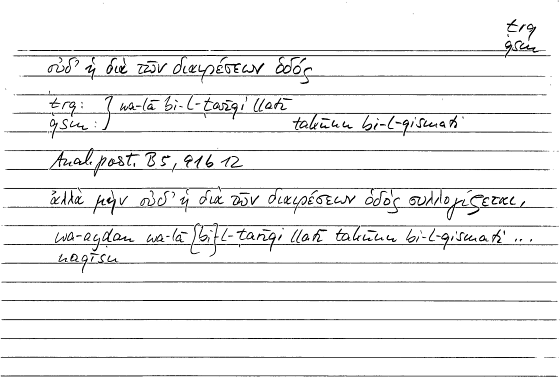 ṭrq
qsm
οὐδ' ἡ διὰ τῶν διαιρέσεων ὁδός
ṭrq: } wa-lā bi-l-ṭarīqi llatī
qsm: } takūnu bi-l-qismati
Anal. post. B 5, 91b 12
ἀλλὰ μὴν οὐδ' ἡ διὰ τῶν διαιρέσεων ὁδὸς συλλογίζεται,
wa-ayḍan wa-lā {bi}-l-ṭarīqi llatī takūnu bi-l-qismati ...
naqīsu